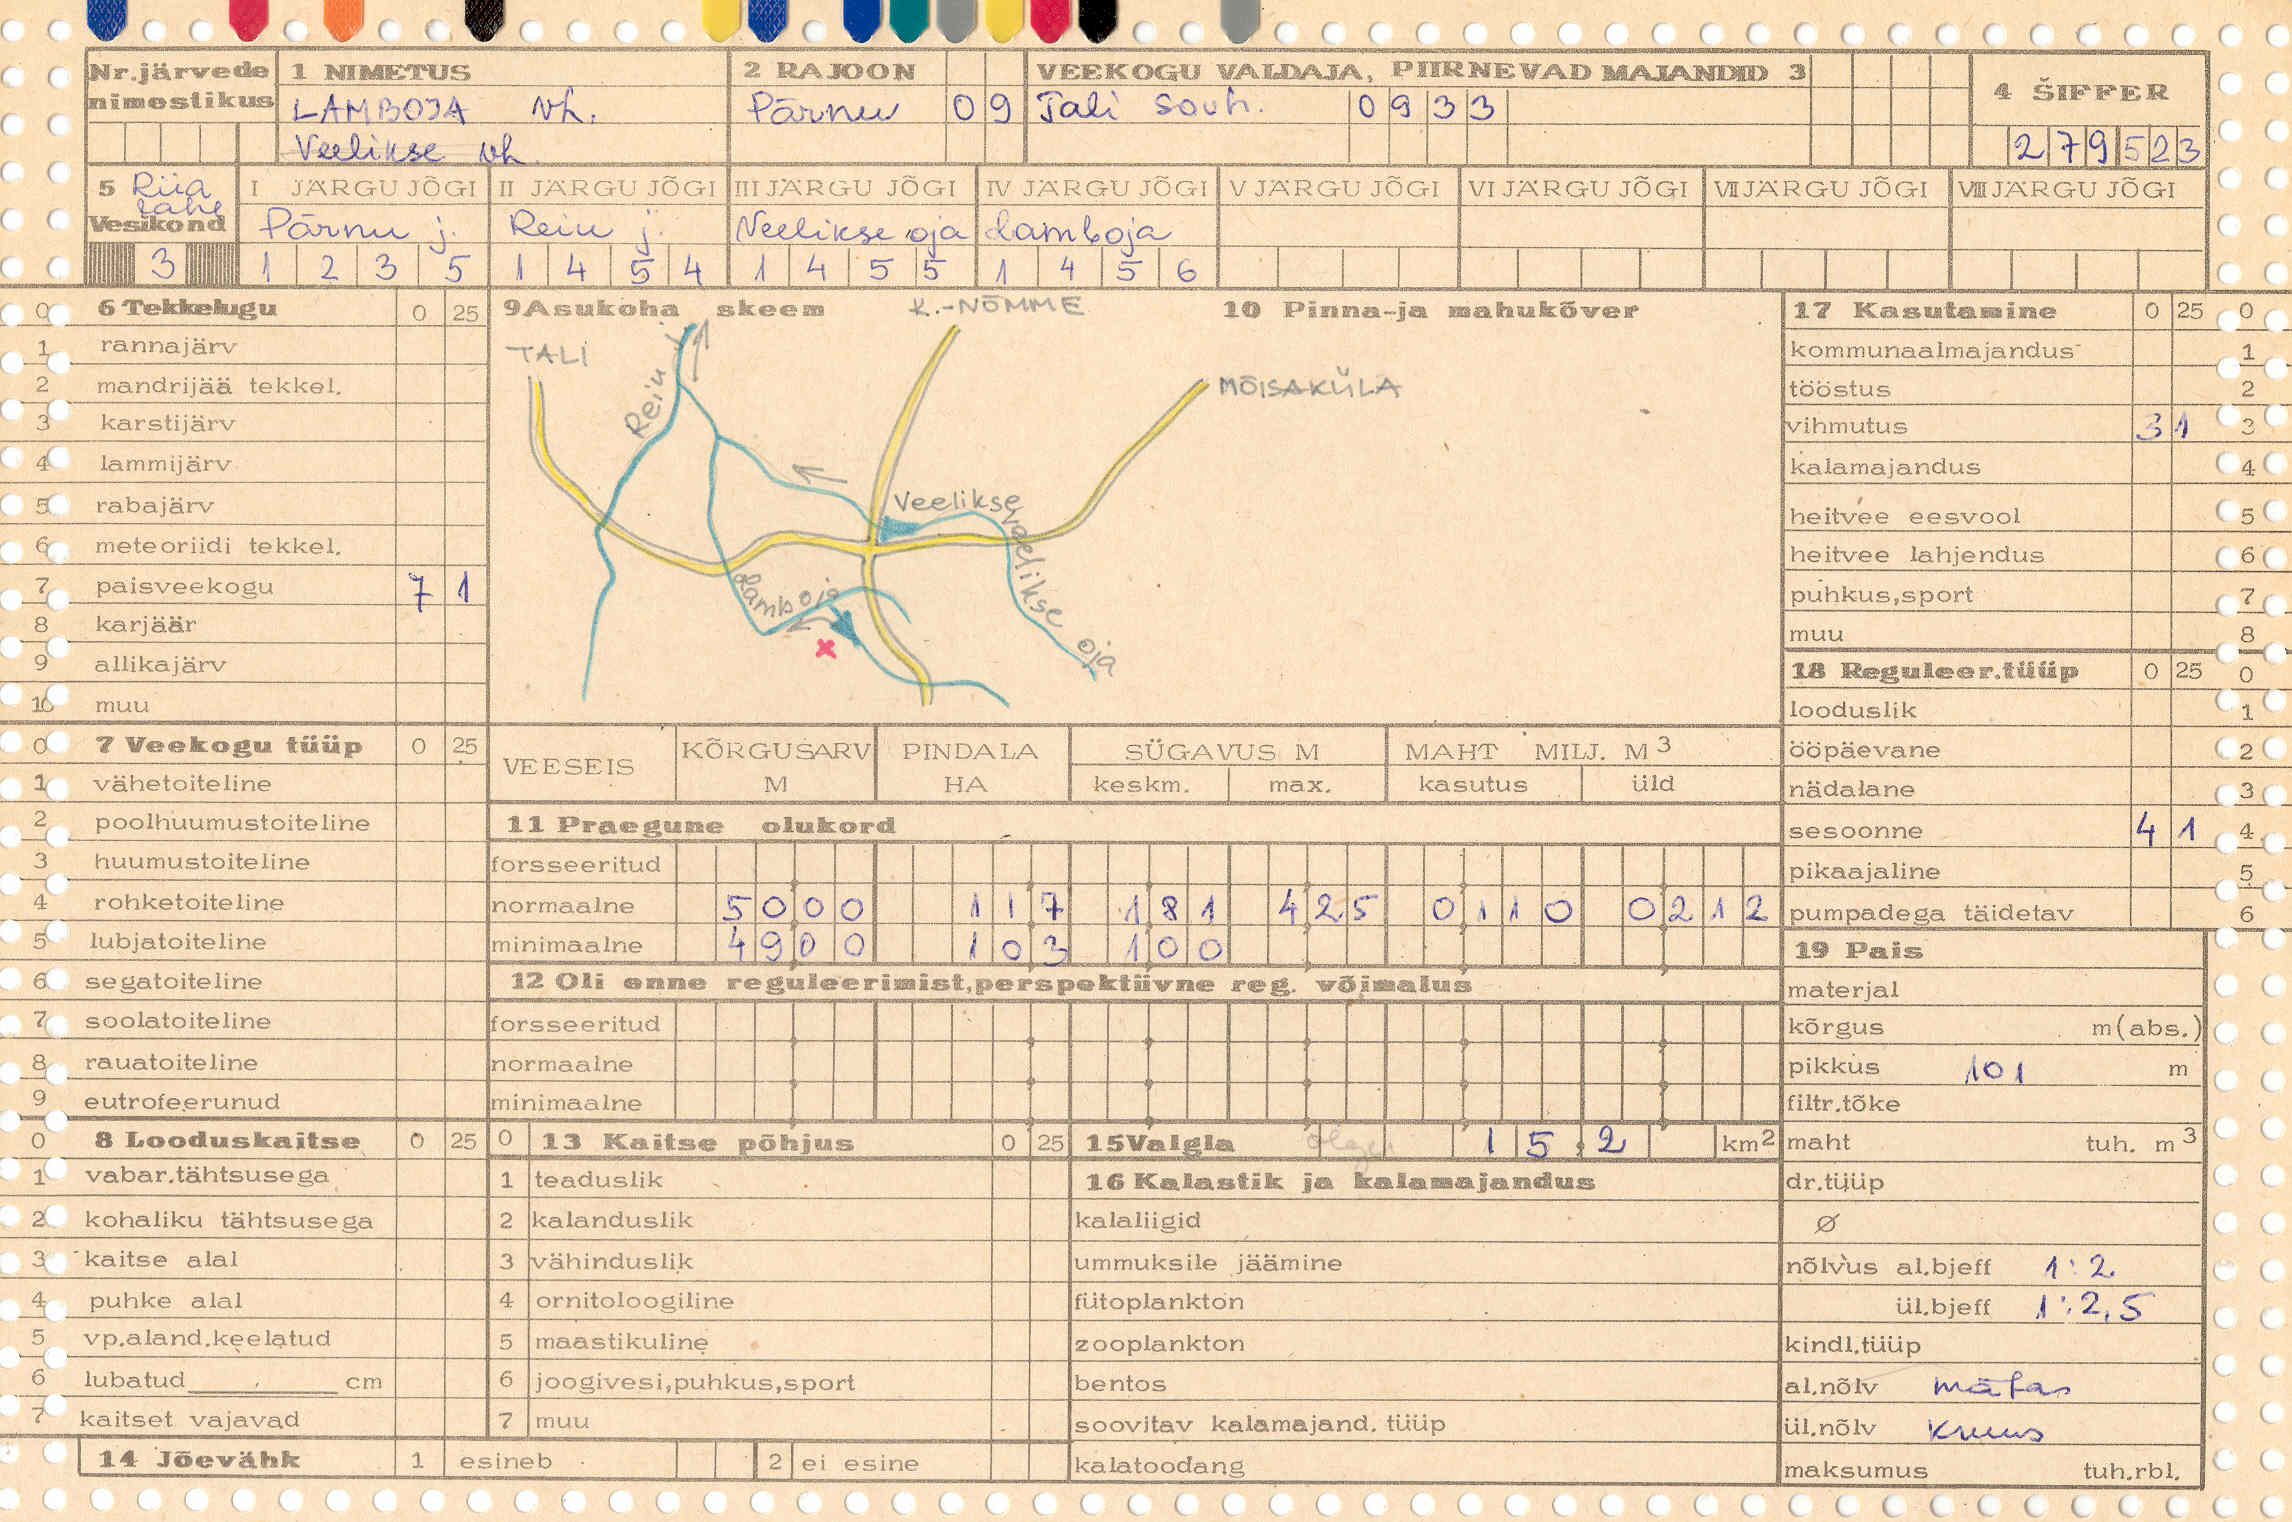 Nr.järvede nimestikus
1 NIMETUS
LAMBOJA vh.
Veelikse vh
2 RAJOON
Pärnu 09
VEEKOGU VALDAJA, PIIRNEVAD MAJANDID 3
Tali sovh. 0933
4 ŠIFFER
279523
5 Riia lahe
Vesikond
3
I JÄRGU JÕGI
Pärnu j.
1 2 3 5
II JÄRGU JÕGI
Reiu j.
1 4 5 4
III JÄRGU JÕGI
Veelikse oja
1 4 5 5
IV JÄRGU JÕGI
Lamboja
1 4 5 6
V JÄRGU JÕGI
VI JÄRGU JÕGI
VII JÄRGU JÕGI
VIII JÄRGU JÕGI
0 6 Tekkelugu 0 25
1 rannajärv
2 mandrijää tekkel.
3 karstijärv
4 lammijärv
5 rabajärv
6 meteoriidi tekkel.
7 paisveekogu 7 1
8 karjäär
9 allikajärv
10 muu
0 7 Veekogu tüüp 0 25
1 vähetoiteline
2 poolhuumustoiteline
3 huumustoiteline
4 rohketoiteline
5 lubjatoiteline
6 segatoiteline
7 soolatoiteline
8 rauatoiteline
9 eutrofeerunud
0 8 Looduskaitse 0 25
1 vabar.tähtsusega
2 kohaliku tähtsusega
3 kaitse alal
4 puhke alal
5 vp.aland.keelatud
6 lubatud cm
7 kaitset vajavad
14 Jõevähk 1 esineb 2 ei esine
9 Asukoha skeem
K.-NÕMME
TALI
Reiu j.
MÕISAKÜLA
Veelikse
Veelikse oja
Lamboja
x
10 Pinna-ja mahukõver
VEESEIS
KÕRGUSARV M
PINDALA HA
SÜGAVUS M
keskm. max.
MAHT MILJ. M3
kasutus üld
11 Praegune olukord
forsseeritud
normaalne 5000 117 181 425 0110 0212
minimaalne 4900 103 100
12 Oli enne reguleerimist,perspektiivne reg. võimalus
forsseeritud
normaalne
minimaalne
0 13 Kaitse põhjus 0 25
1 teaduslik
2 kalanduslik
3 vähinduslik
4 ornitoloogiline
5 maastikuline
6 joogivesi,puhkus,sport
7 muu
15 Valgla 15,2 km2
16 Kalastik ja kalamajandus
kalaliigid
ummuksile jäämine
fütoplankton
zooplankton
bentos
soovitav kalamajand. tüüp
kalatoodang
17 Kasutamine 0 25 0
kommunaalmajandus 1
tööstus 2
vihmutus 3 1 3
kalamajandus 4
heitvee eesvool 5
heitvee lahjendus 6
puhkus,sport 7
muu 8
18 Reguleer.tüüp 0 25 0
looduslik 1
ööpäevane 2
nädalane 3
sesoonne 4 1 4
pikaajaline 5
pumpadega täidetav 6
19 Pais
materjal
kõrgus m(abs.)
pikkus 101 m
filtr.tõke
maht tuh. m3
dr.tüüp
Ø
nõlvus al.bjeff 1:2
ül.bjeff 1:2,5
kindl.tüüp
al.nõlv mätas
ül.nõlv kruus
maksumus tuh.rbl.